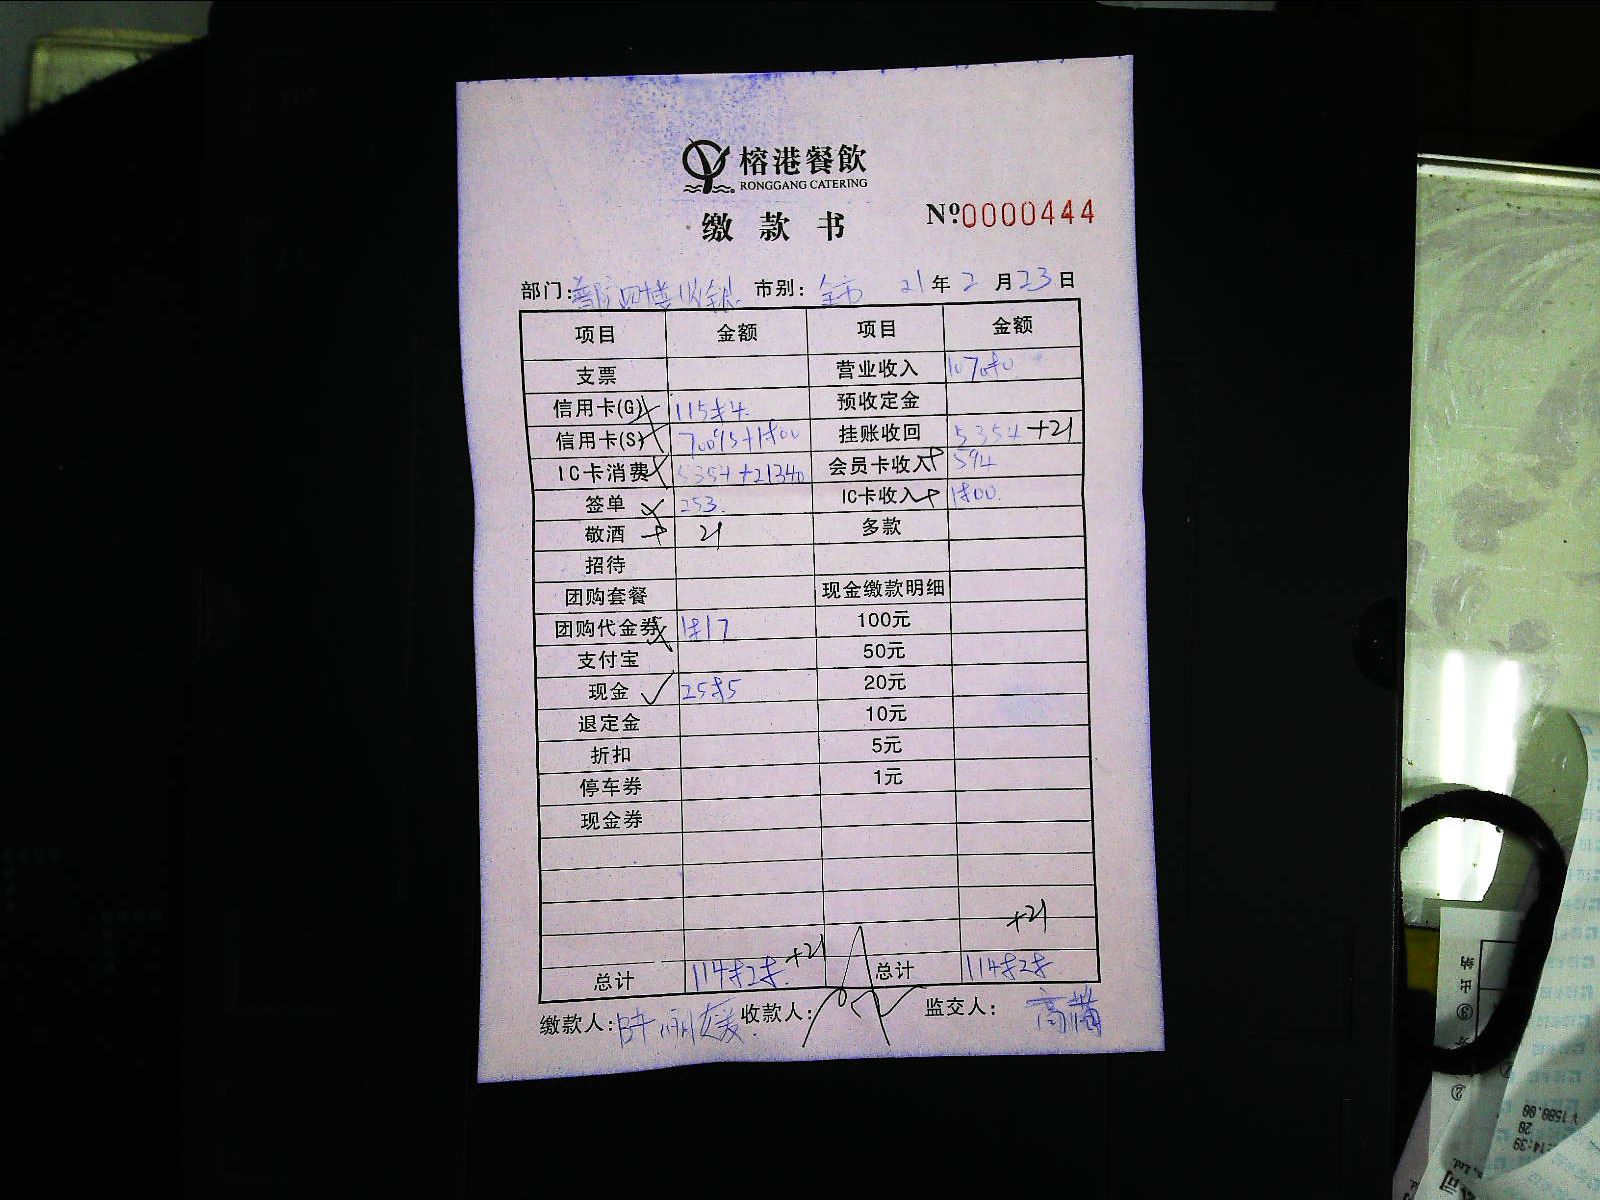 榕港餐飲
RONGGANG CATERING
缴款书
Nº:0000444
部门: 收银 市别: 全市 21年2月23日
项目 金额 项目 金额
支票 营业收入 107080
信用卡(G) 11584 预收定金
信用卡(S) 70095+1800 挂账收回 5354 +21
IC卡消费 5354+21340 会员卡收入 594
签单 253 IC卡收入 1800
敬酒 21 多款
招待
团购套餐 现金缴款明细
团购代金券 1817 100元
支付宝 50元
现金 2585 20元
退定金 10元
折扣 5元
停车券 1元
现金券
+21
总计 114828 +21 总计 114828
缴款人: 收款人: 监交人:
出纳
③
②
¥1580.00
20
14:39
Ltd.
司